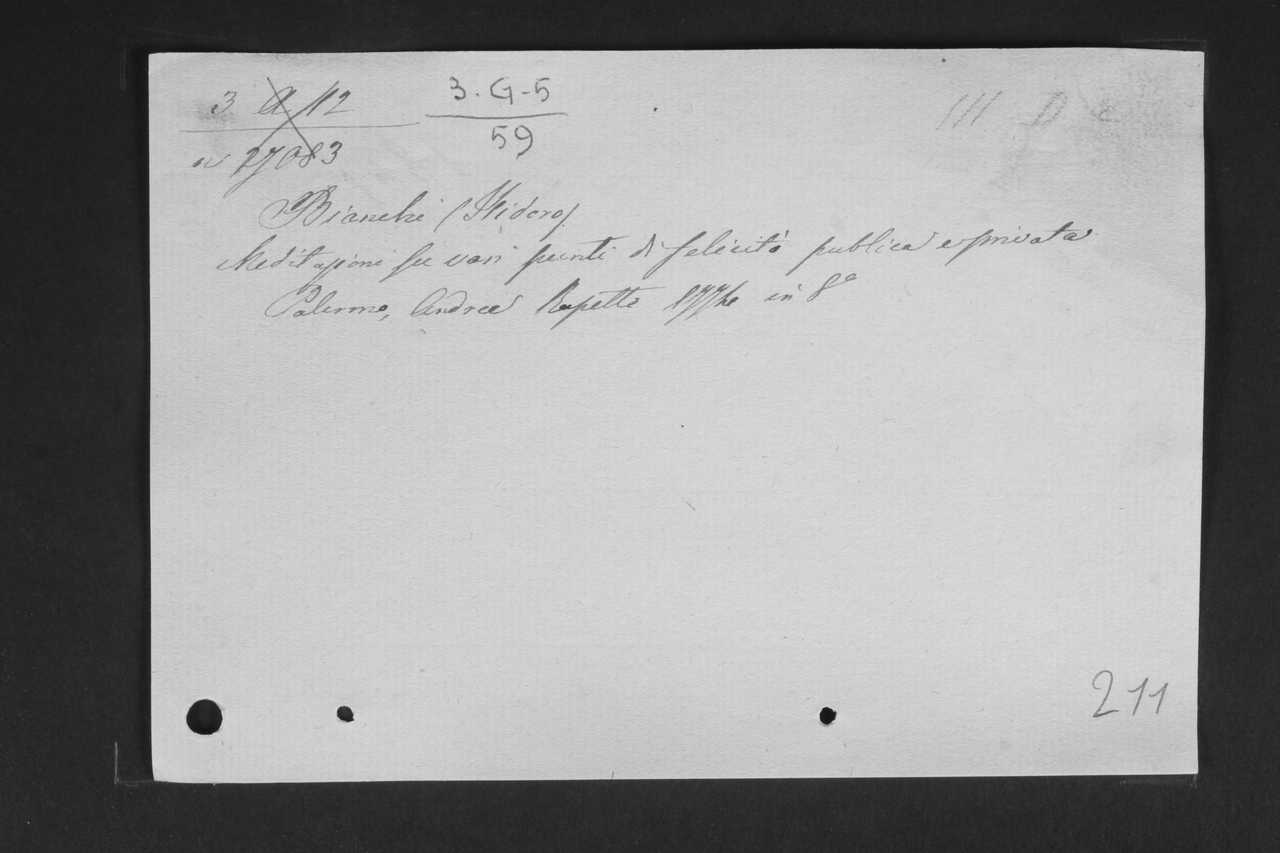 3 A 12
3. G-5
59
n° 27083
Bianchi (Isidoro)
Meditazioni su vari punti di felicità publica e privata
Palermo, Andrea Rapetti 1774 in 8°
211